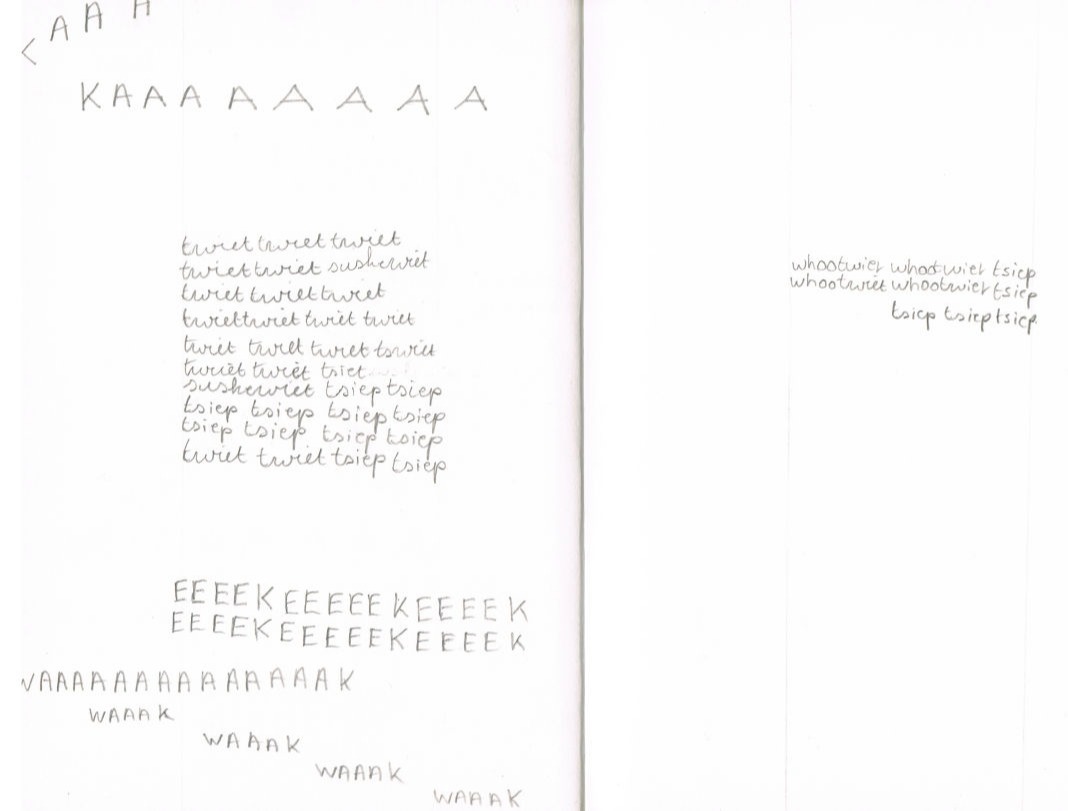 KAAA
KAAAAAAAA
twiet twiet twiet
twiet twiet sushewiet
twiet twiet twiet
twiet twiet twiet twiet
twiet twiet twiet tswiet
twiet twiet tsiet
sushewiet tsiep tsiep
tsiep tsiep tsiep tsiep
tsiep tsiep tsiep tsiep
twiet twiet tsiep tsiep
EEEEKEEEEEKEEEEK
EEEEKEEEEEKEEEEK
WAAAAAAAAAAAAAAK
WAAAK
WAAAK
WAAAK
WAAAK
whootwiet whootwiet tsiep
whootwiet whootwiet tsiep
tsiep tsiep tsiep